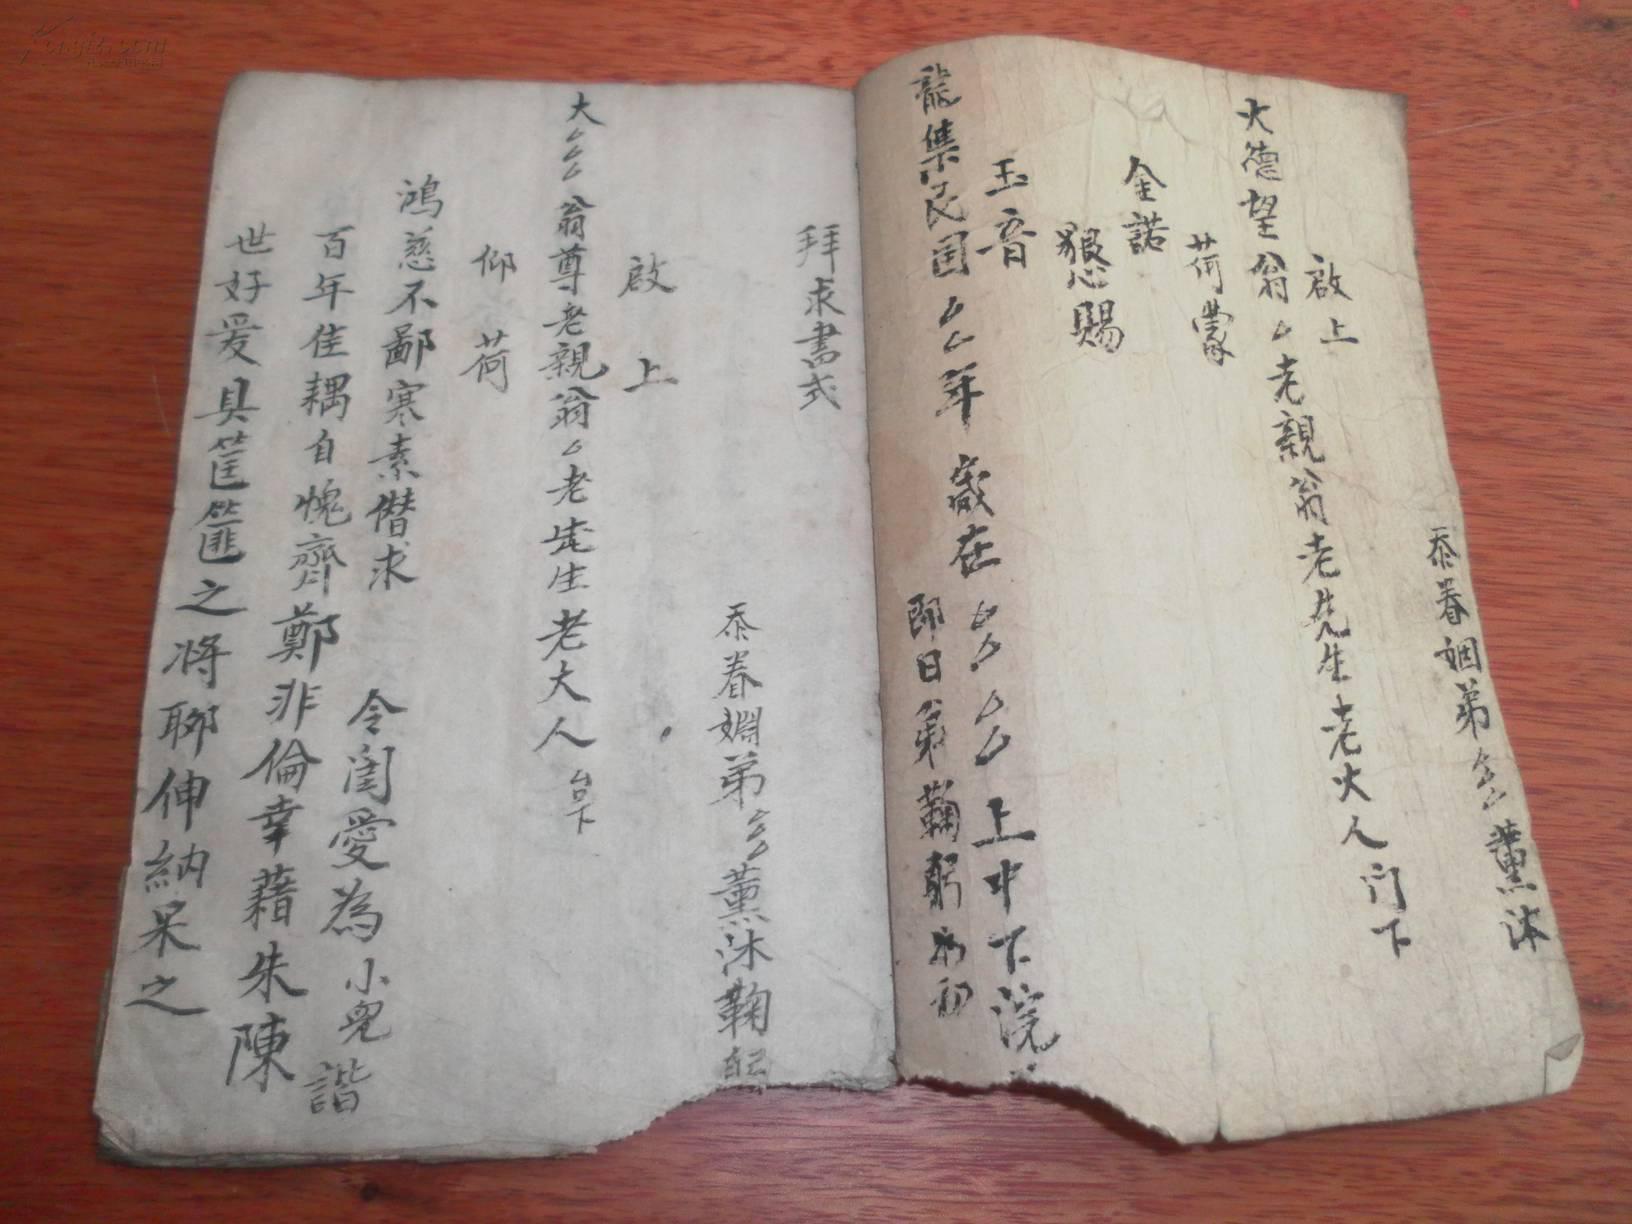 忝眷姻弟厶厶薰沐
啟上
大德望翁厶老親翁老先生老大人门下
荷蒙
金諾
懇賜
玉音
龍集民国厶厶年歲在厶厶厶厶上中下浣
即日弟鞠躬
拜求書式
忝眷姻弟厶厶薰沐鞠躬
啟上
大厶厶厶翁尊老親翁厶老先生老大人台下
仰荷
鴻慈不鄙寒素僭求
令閨愛為小兒諧
百年佳耦自愧齊鄭非倫幸藉朱陳
世好爰具筐篚之将聊伸納采之